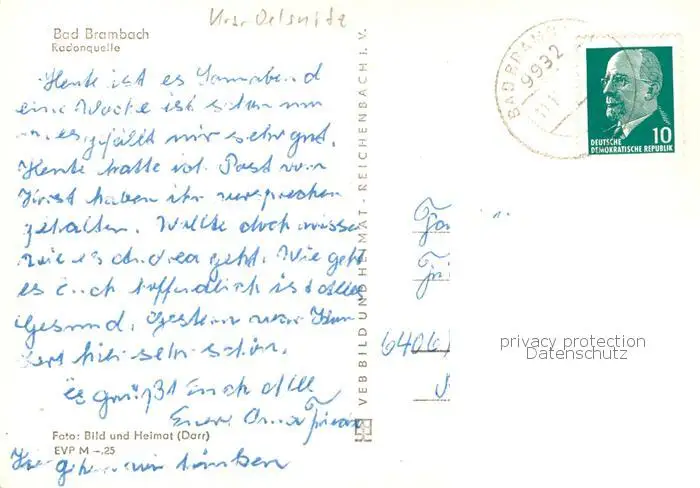 Bad Brambach
Radonquelle
Heute ist es Sonnabend
eine Woche ist schon um
es gefällt mir sehr gut.
Heute hatte ich Post von
Horst haben ihr versprechen
gehalten. Wollte doch wissen
wie es Andrea geht. Wie geht
es Euch hoffendlich ist alles
Gesund. Gestern war Kon
zert hier sehr schön.
Es grüßt Euch alle
Eure Oma
Foto: Bild und Heimat (Darr)
EVP M –.25
gehen wir trinken
VEB BILD UND HEIMAT · REICHENBACH I. V.
BAD BRAMB
9932
DEUTSCHE
DEMOKRATISCHE REPUBLIK
10
6406
privacy protection
Datenschutz